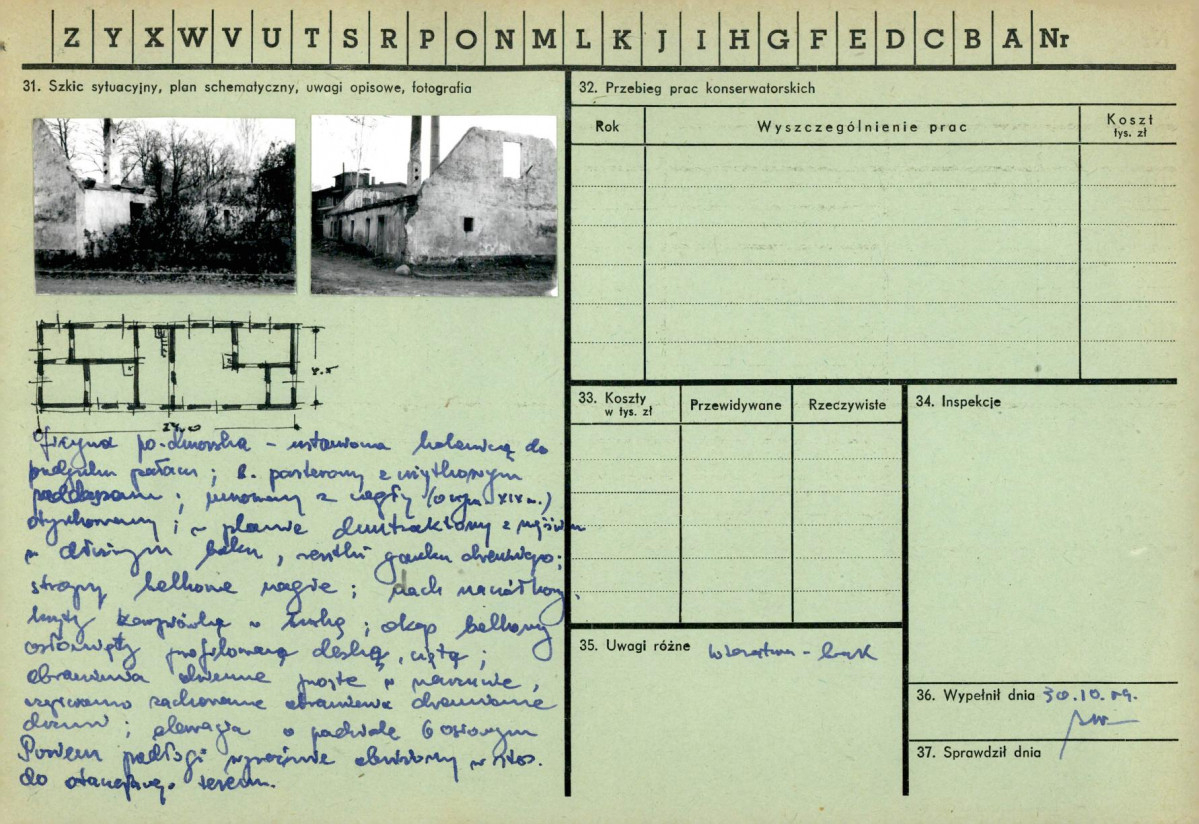 Z Y X W V U T S R P O N M L K J I H G F E D C B A Nr
31. Szkic sytuacyjny, plan schematyczny, uwagi opisowe, fotografia
8.5
24,0
Oficyna po-dworska – ustawiona kalenicą do
budynku pałacu; b. parterowy z użytkowym
poddaszem; murowany z cegły
otynkowany; w planie dwutraktowy z
w dłuższym boku, resztki ganku drewnianego;
stropy belkowe nagie; dach naczółkowy,
kryty karpiówką w łuskę; okap belkowy
osłonięty profilowaną deską, ciętą;
obramienia okienne proste w narzucie,
częściowo zachowane obramienia drewniane
drzwi; elewacja o podziale 6 osiowym
Poziom podłogi wyraźnie obniżony w stos.
do otaczającego terenu.
32. Przebieg prac konserwatorskich
Rok
Wyszczególnienie prac
Koszt
tys. zł
33. Koszty
w tys. zł
Przewidywane
Rzeczywiste
34. Inspekcje
35. Uwagi różne
brak
36. Wypełnił dnia 30.10.89.
37. Sprawdził dnia